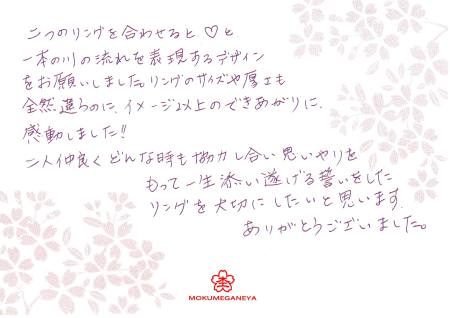 二つのリングを合わせると♡と
一本の川の流れを表現するデザイン
をお願いしました。リングのサイズや厚さも
全然違うのに、イメージ以上のできあがりに、
感動しました!!
二人仲良くどんな時も協力し合い思いやりを
もって一生添い遂げる誓いをした
リングを大切にしたいと思います。
ありがとうございました。
MOKUMEGANEYA